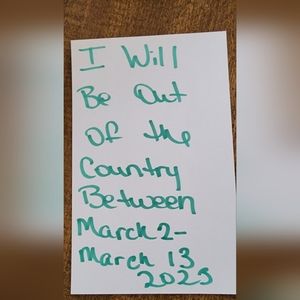 I Will
Be Out
Of the
Country
Between
March 2-
March 13
2025